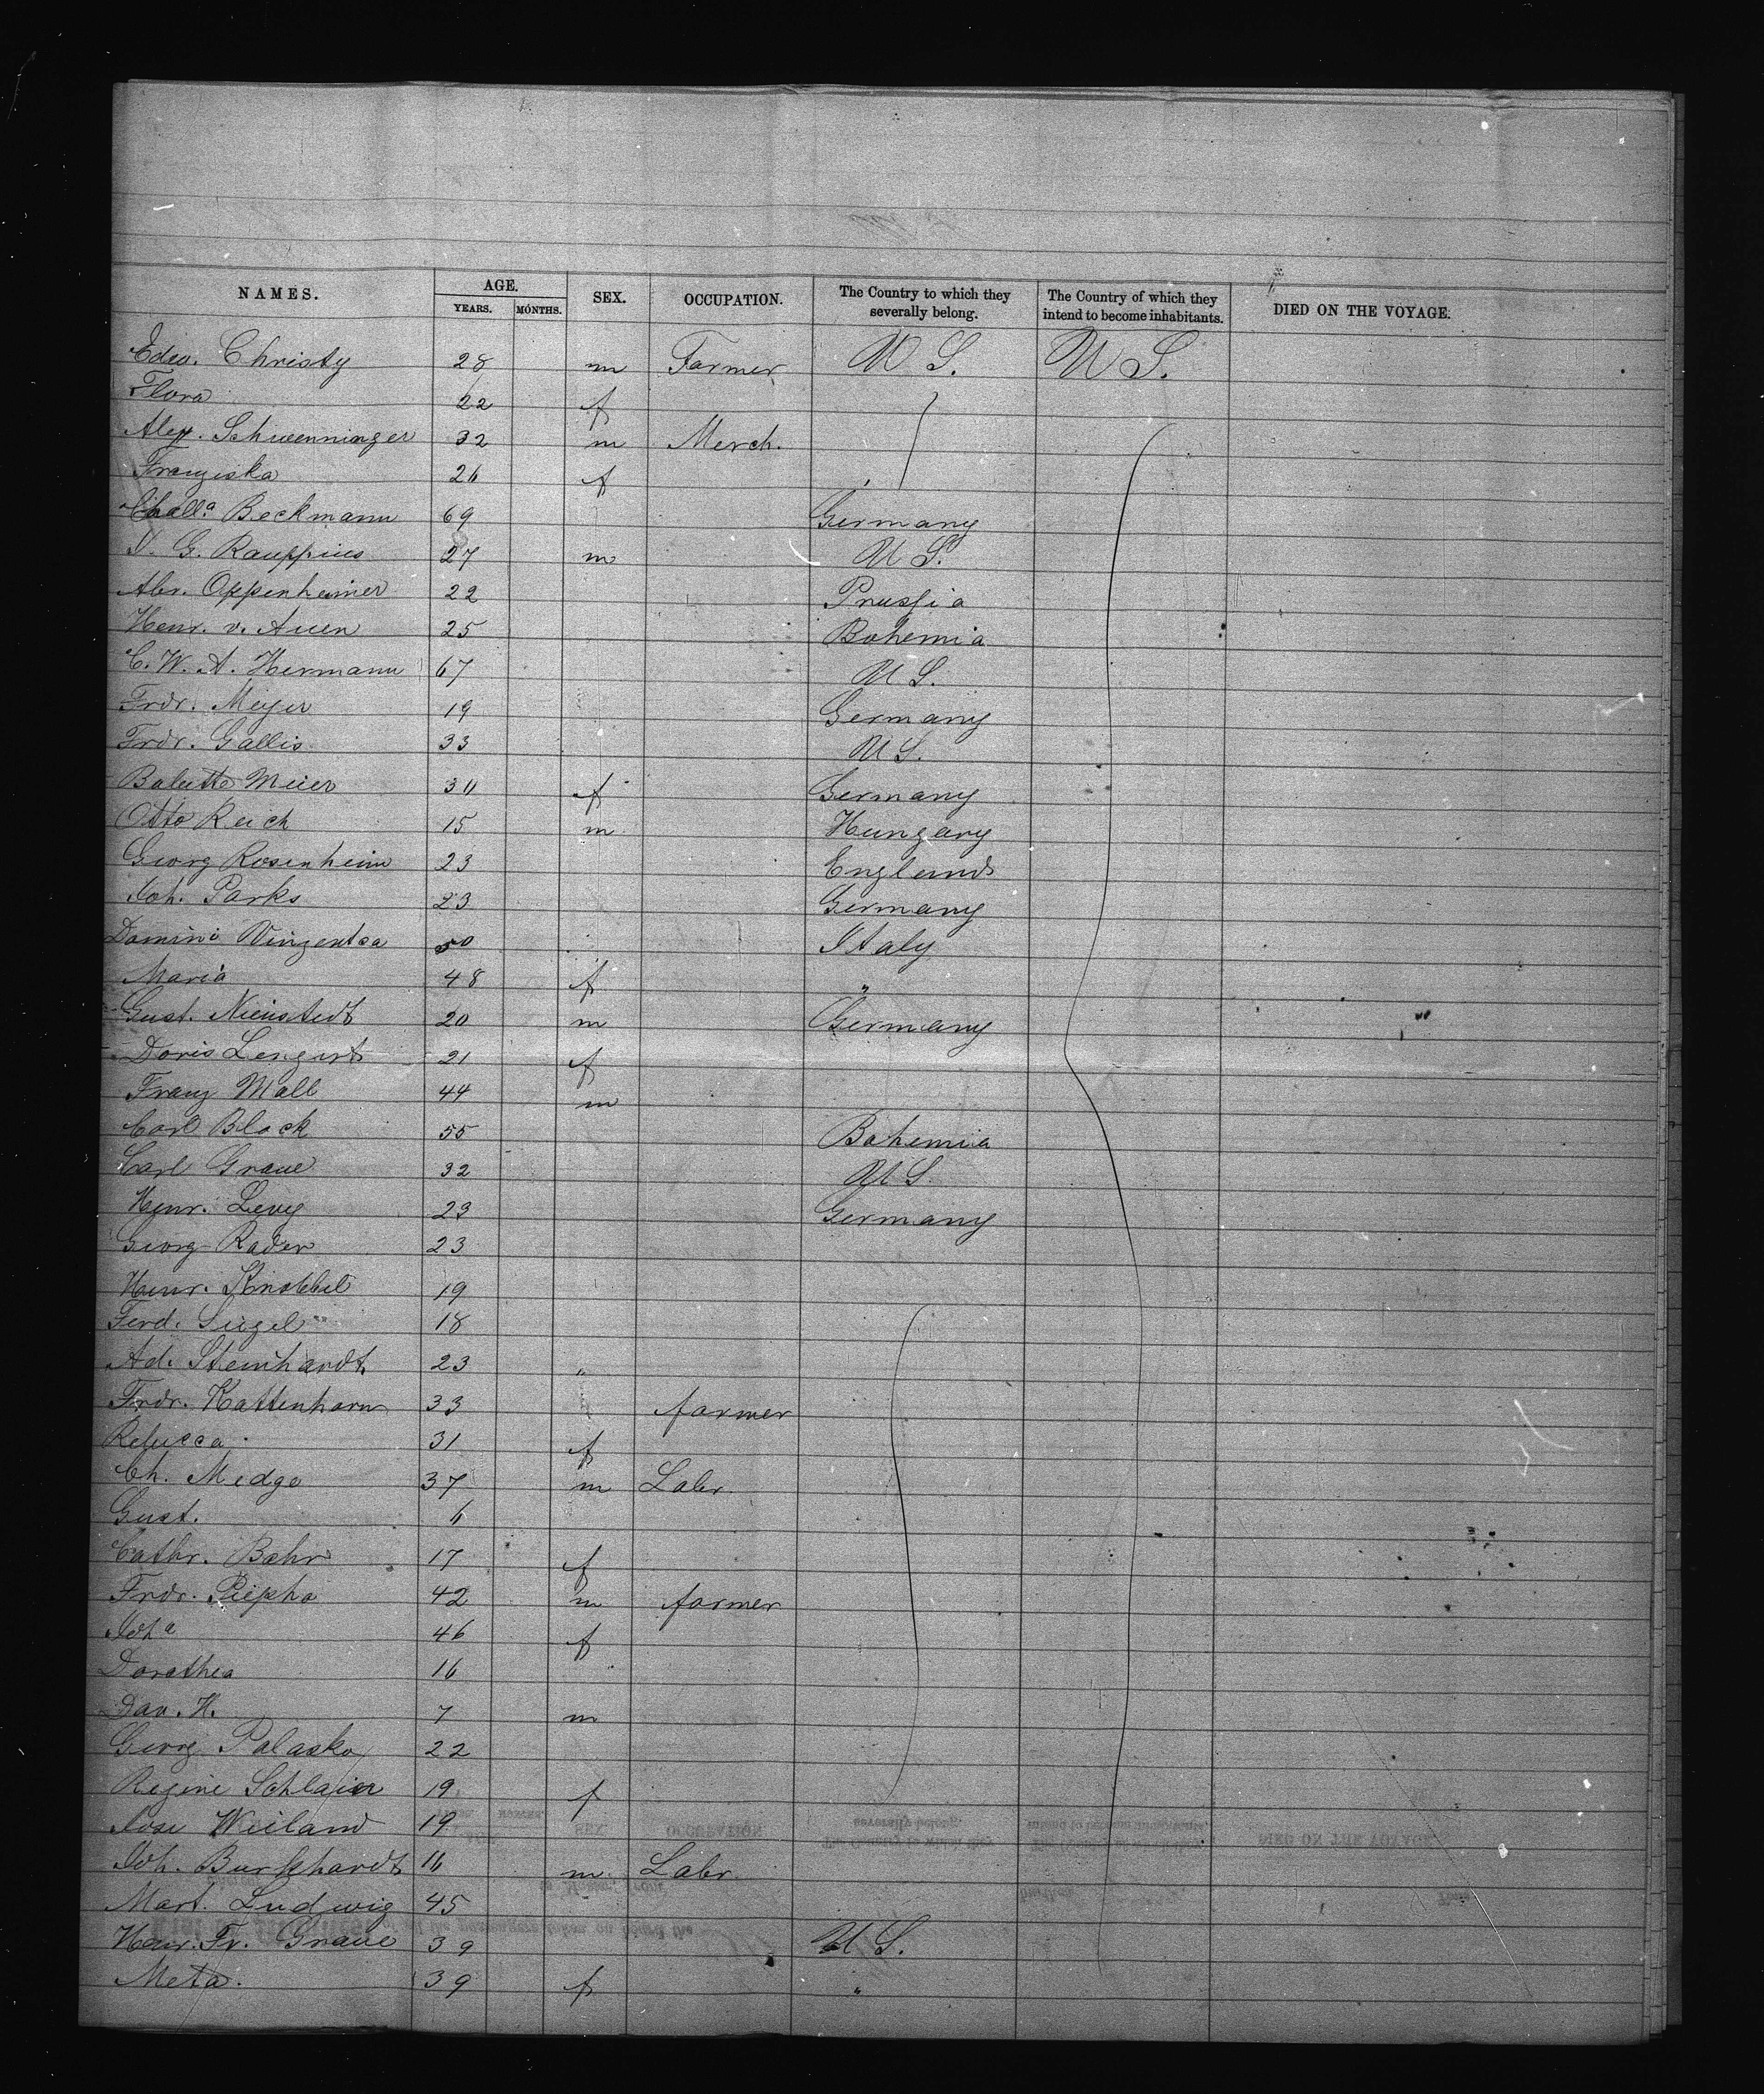 NAMES. AGE. SEX. OCCUPATION. The Country to which they severally belong. The Country of which they intend to become inhabitants. DIED ON THE VOYAGE.
YEARS. MONTHS.
Edw. Christy 28 m Farmer U S. U S.
Flora 22 f
Alex. Schwenninger 32 m Merch.
Franziska 26 f
Beckmann 69 Germany
G. Rauppius 27 m U S.
Abr. Oppenheimer 22 Prussia
Henr. v. Auen 25 Bohemia
C. W. A. Hermann 67 U S.
Frdr. Meyer 19 Germany
Frdr. Gallis 33 U S.
Babette Meier 30 f Germany
Otto Reich 15 m Hungary
Georg Rosenheim 23 England
Joh. Parks 23 Germany
Domini Vinzentsa 50 Italy
Maria 48 f "
Gust. Nienstedt 20 m Germany
Doris Lengert 21 f
Franz Mall 44 m
Carl Block 55 Bohemia
Carl Graue 32 U S
Henr. Levy 23 Germany
Georg Rader 23
Henr. Knobbel 19
Ferd. Siegel 18
Ad. Steinhardt 23 "
Frdr. Kattenhorn 33 farmer
Rebecca 31 f
Ch. Medge 37 m Labr.
Gust. 6
Cathr. Bahr 17 f
Frdr. Piepho 42 m farmer
Joha 46 f
Dorothea 16
Dav. H. 7 m
Georg Palasko 22
Regine Schlaier 19 f
Rosi Weiland 19
Joh. Burkhardt 16 m Labr.
Mart. Ludwig 45
Henr. Fr. Graue 39 U S.
Meta. 39 f "